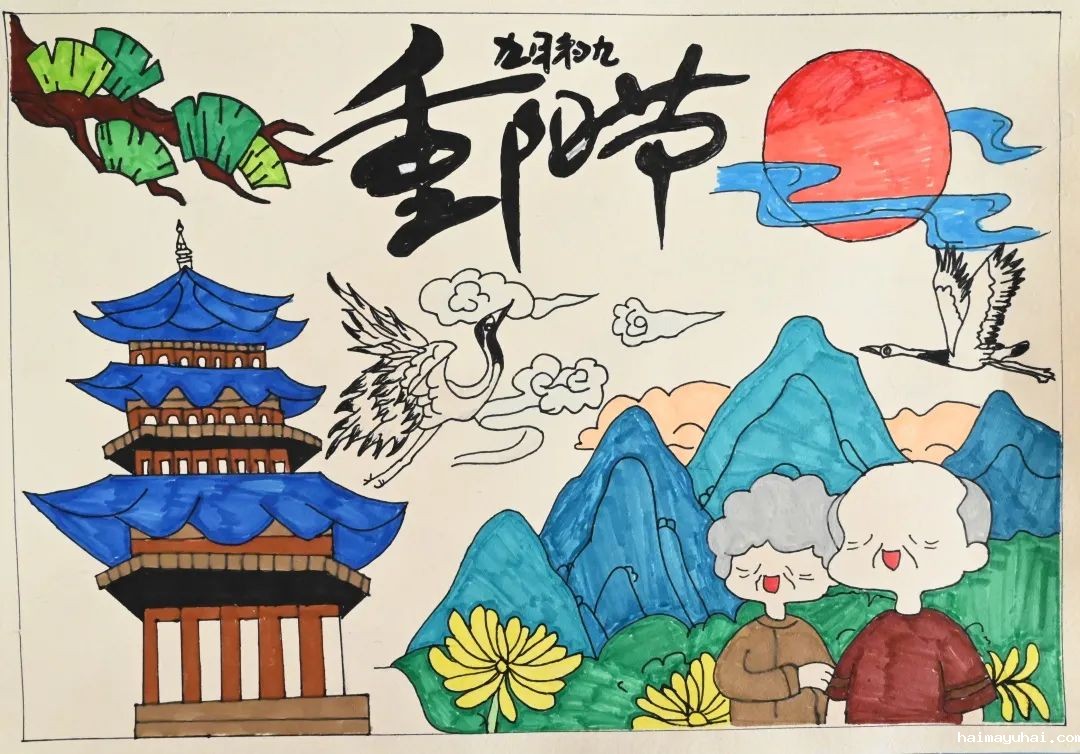 九月初九
重阳节
haimayuhai.com